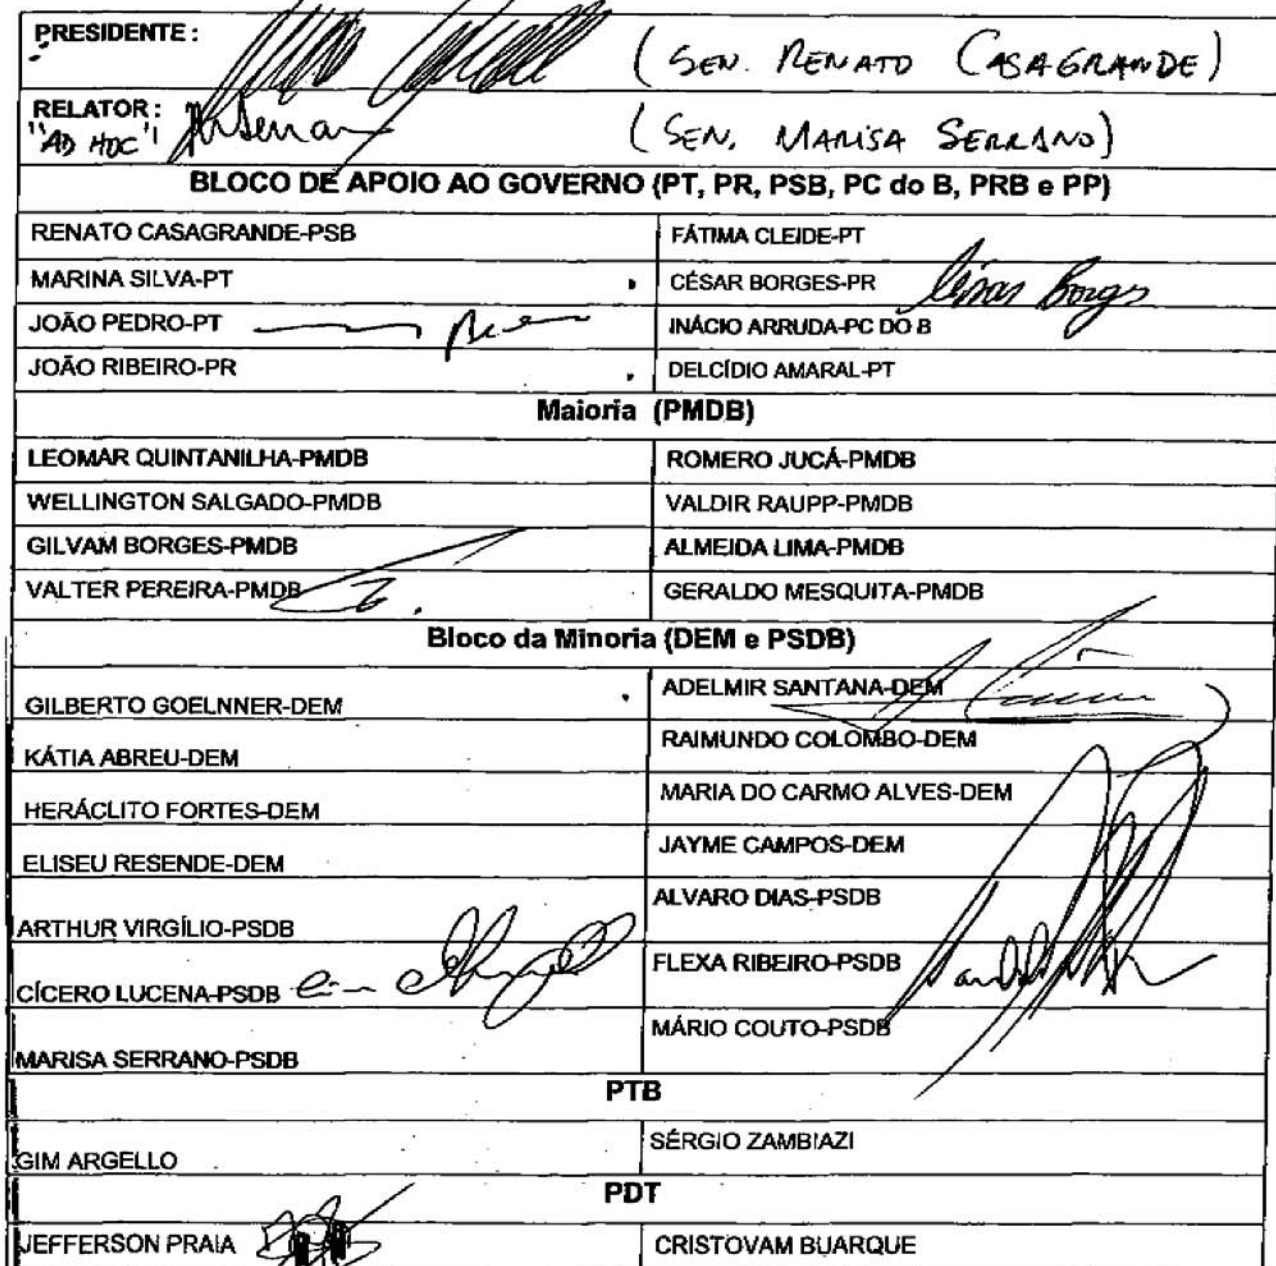 PRESIDENTE: (SEN. RENATO CASAGRANDE)
RELATOR: (SEN. MARISA SERRANO)
"AD HOC"
BLOCO DE APOIO AO GOVERNO (PT, PR, PSB, PC do B, PRB e PP)
RENATO CASAGRANDE-PSB FÁTIMA CLEIDE-PT
MARINA SILVA-PT CÉSAR BORGES-PR César Borges
JOÃO PEDRO-PT INÁCIO ARRUDA-PC DO B
JOÃO RIBEIRO-PR DELCÍDIO AMARAL-PT
Maioria (PMDB)
LEOMAR QUINTANILHA-PMDB ROMERO JUCÁ-PMDB
WELLINGTON SALGADO-PMDB VALDIR RAUPP-PMDB
GILVAM BORGES-PMDB ALMEIDA LIMA-PMDB
VALTER PEREIRA-PMDB GERALDO MESQUITA-PMDB
Bloco da Minoria (DEM e PSDB)
GILBERTO GOELNNER-DEM ADELMIR SANTANA-DEM
KÁTIA ABREU-DEM RAIMUNDO COLOMBO-DEM
HERÁCLITO FORTES-DEM MARIA DO CARMO ALVES-DEM
ELISEU RESENDE-DEM JAYME CAMPOS-DEM
ARTHUR VIRGÍLIO-PSDB ALVARO DIAS-PSDB
CÍCERO LUCENA-PSDB FLEXA RIBEIRO-PSDB
MARISA SERRANO-PSDB MÁRIO COUTO-PSDB
PTB
GIM ARGELLO SÉRGIO ZAMBIAZI
PDT
JEFFERSON PRAIA CRISTOVAM BUARQUE